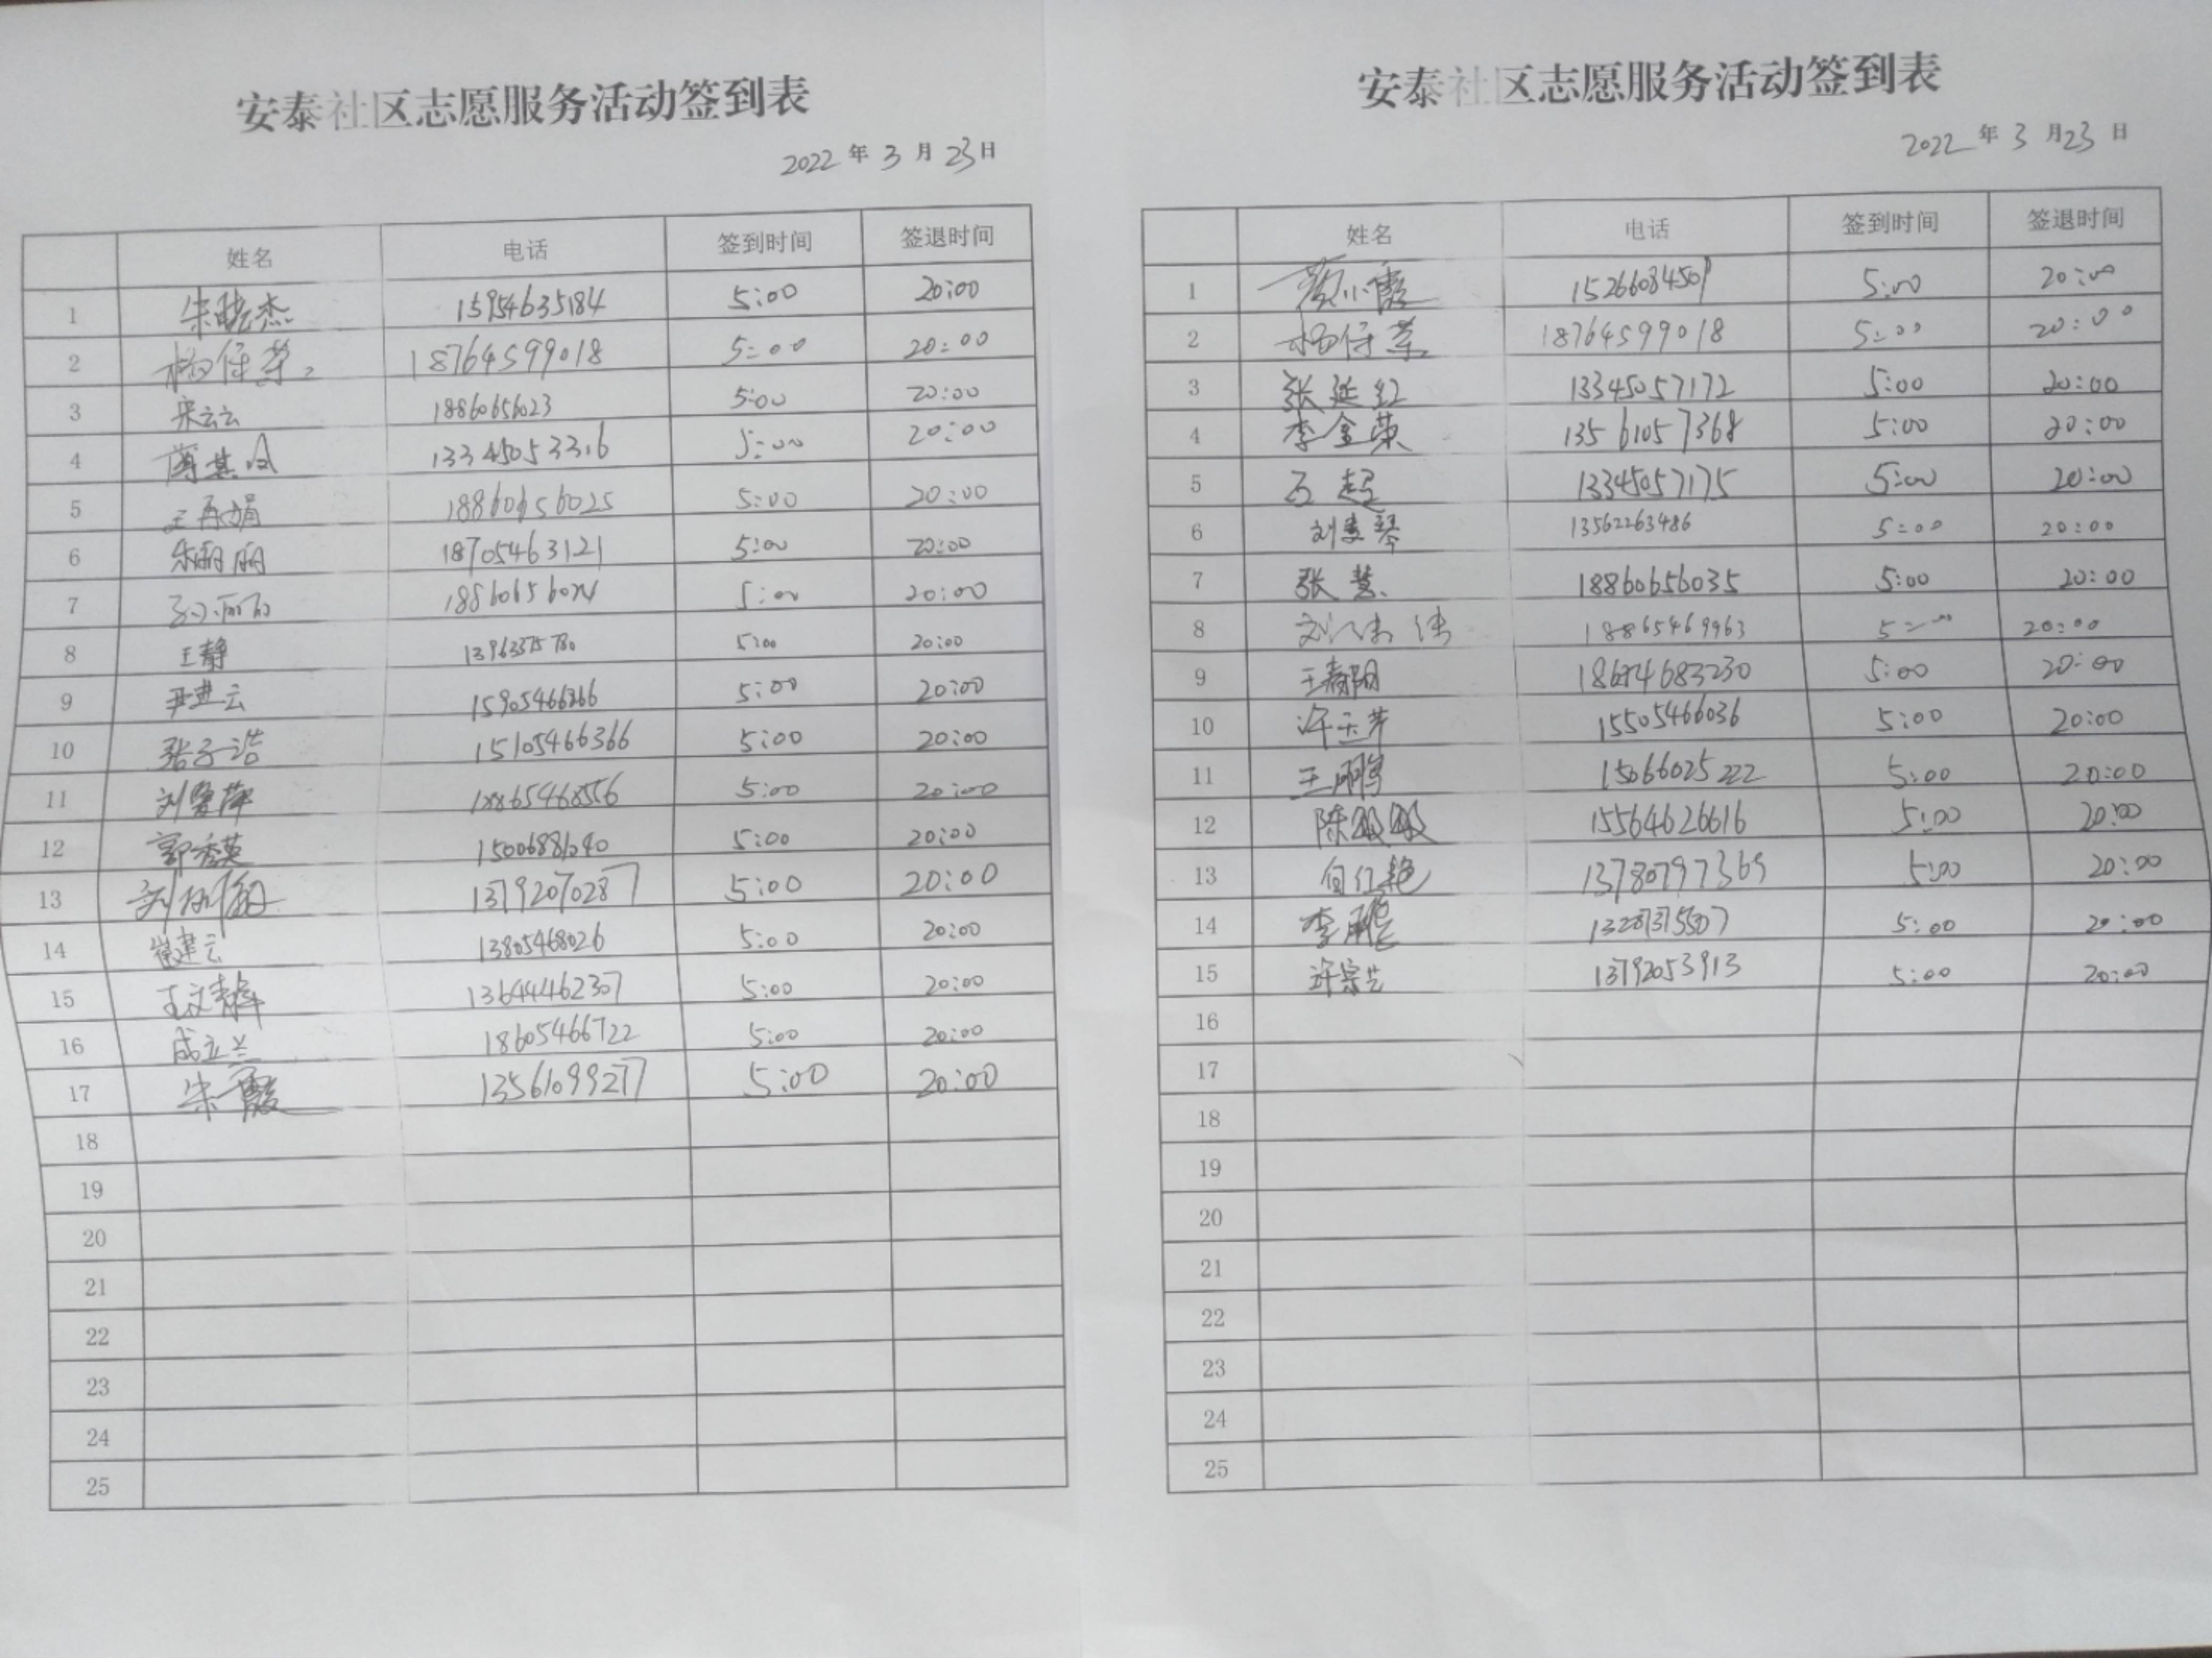 安泰社区志愿服务活动签到表
2022 年 3 月 23 日
姓名 电话 签到时间 签退时间
1 朱晓杰 15954635184 5:00 20:00
2 18764599018 5:00 20:00
3 宋云云 18860656023 5:00 20:00
4 13345053316 5:00 20:00
5 王再娟 18860656025 5:00 20:00
6 朱丽丽 18705463121 5:00 20:00
7 5:00 20:00
8 王静 5:00 20:00
9 尹建云 15905466366 5:00 20:00
10 张子浩 15105466366 5:00 20:00
11 18865468556 5:00 20:00
12 郭秀英 5:00 20:00
13 13792070287 5:00 20:00
14 崔建云 13805468026 5:00 20:00
15 13644462307 5:00 20:00
16 成立兰 18605466722 5:00 20:00
17 朱霞 13561099277 5:00 20:00
18
19
20
21
22
23
24
25
安泰社区志愿服务活动签到表
2022 年 3 月 23 日
姓名 电话 签到时间 签退时间
1 15266084501 5:00 20:00
2 18764599018 5:00 20:00
3 张延红 13345057172 5:00 20:00
4 李金荣 13561057368 5:00 20:00
5 石超 13345057175 5:00 20:00
6 13562263486 5:00 20:00
7 张慧 18860656035 5:00 20:00
8 18865469963 5:00 20:00
9 王春阳 5:00 20:00
10 许玉芹 15505466036 5:00 20:00
11 王鹏 15066025222 5:00 20:00
12 15564626616 5:00 20:00
13 13780797369 5:00 20:00
14 5:00 20:00
15 许宗兰 13792053913 5:00 20:00
16
17
18
19
20
21
22
23
24
25